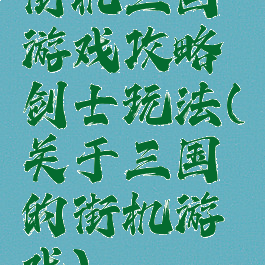 街机三国
游戏攻略
剑士玩法(
关于三国
的街机游
戏)